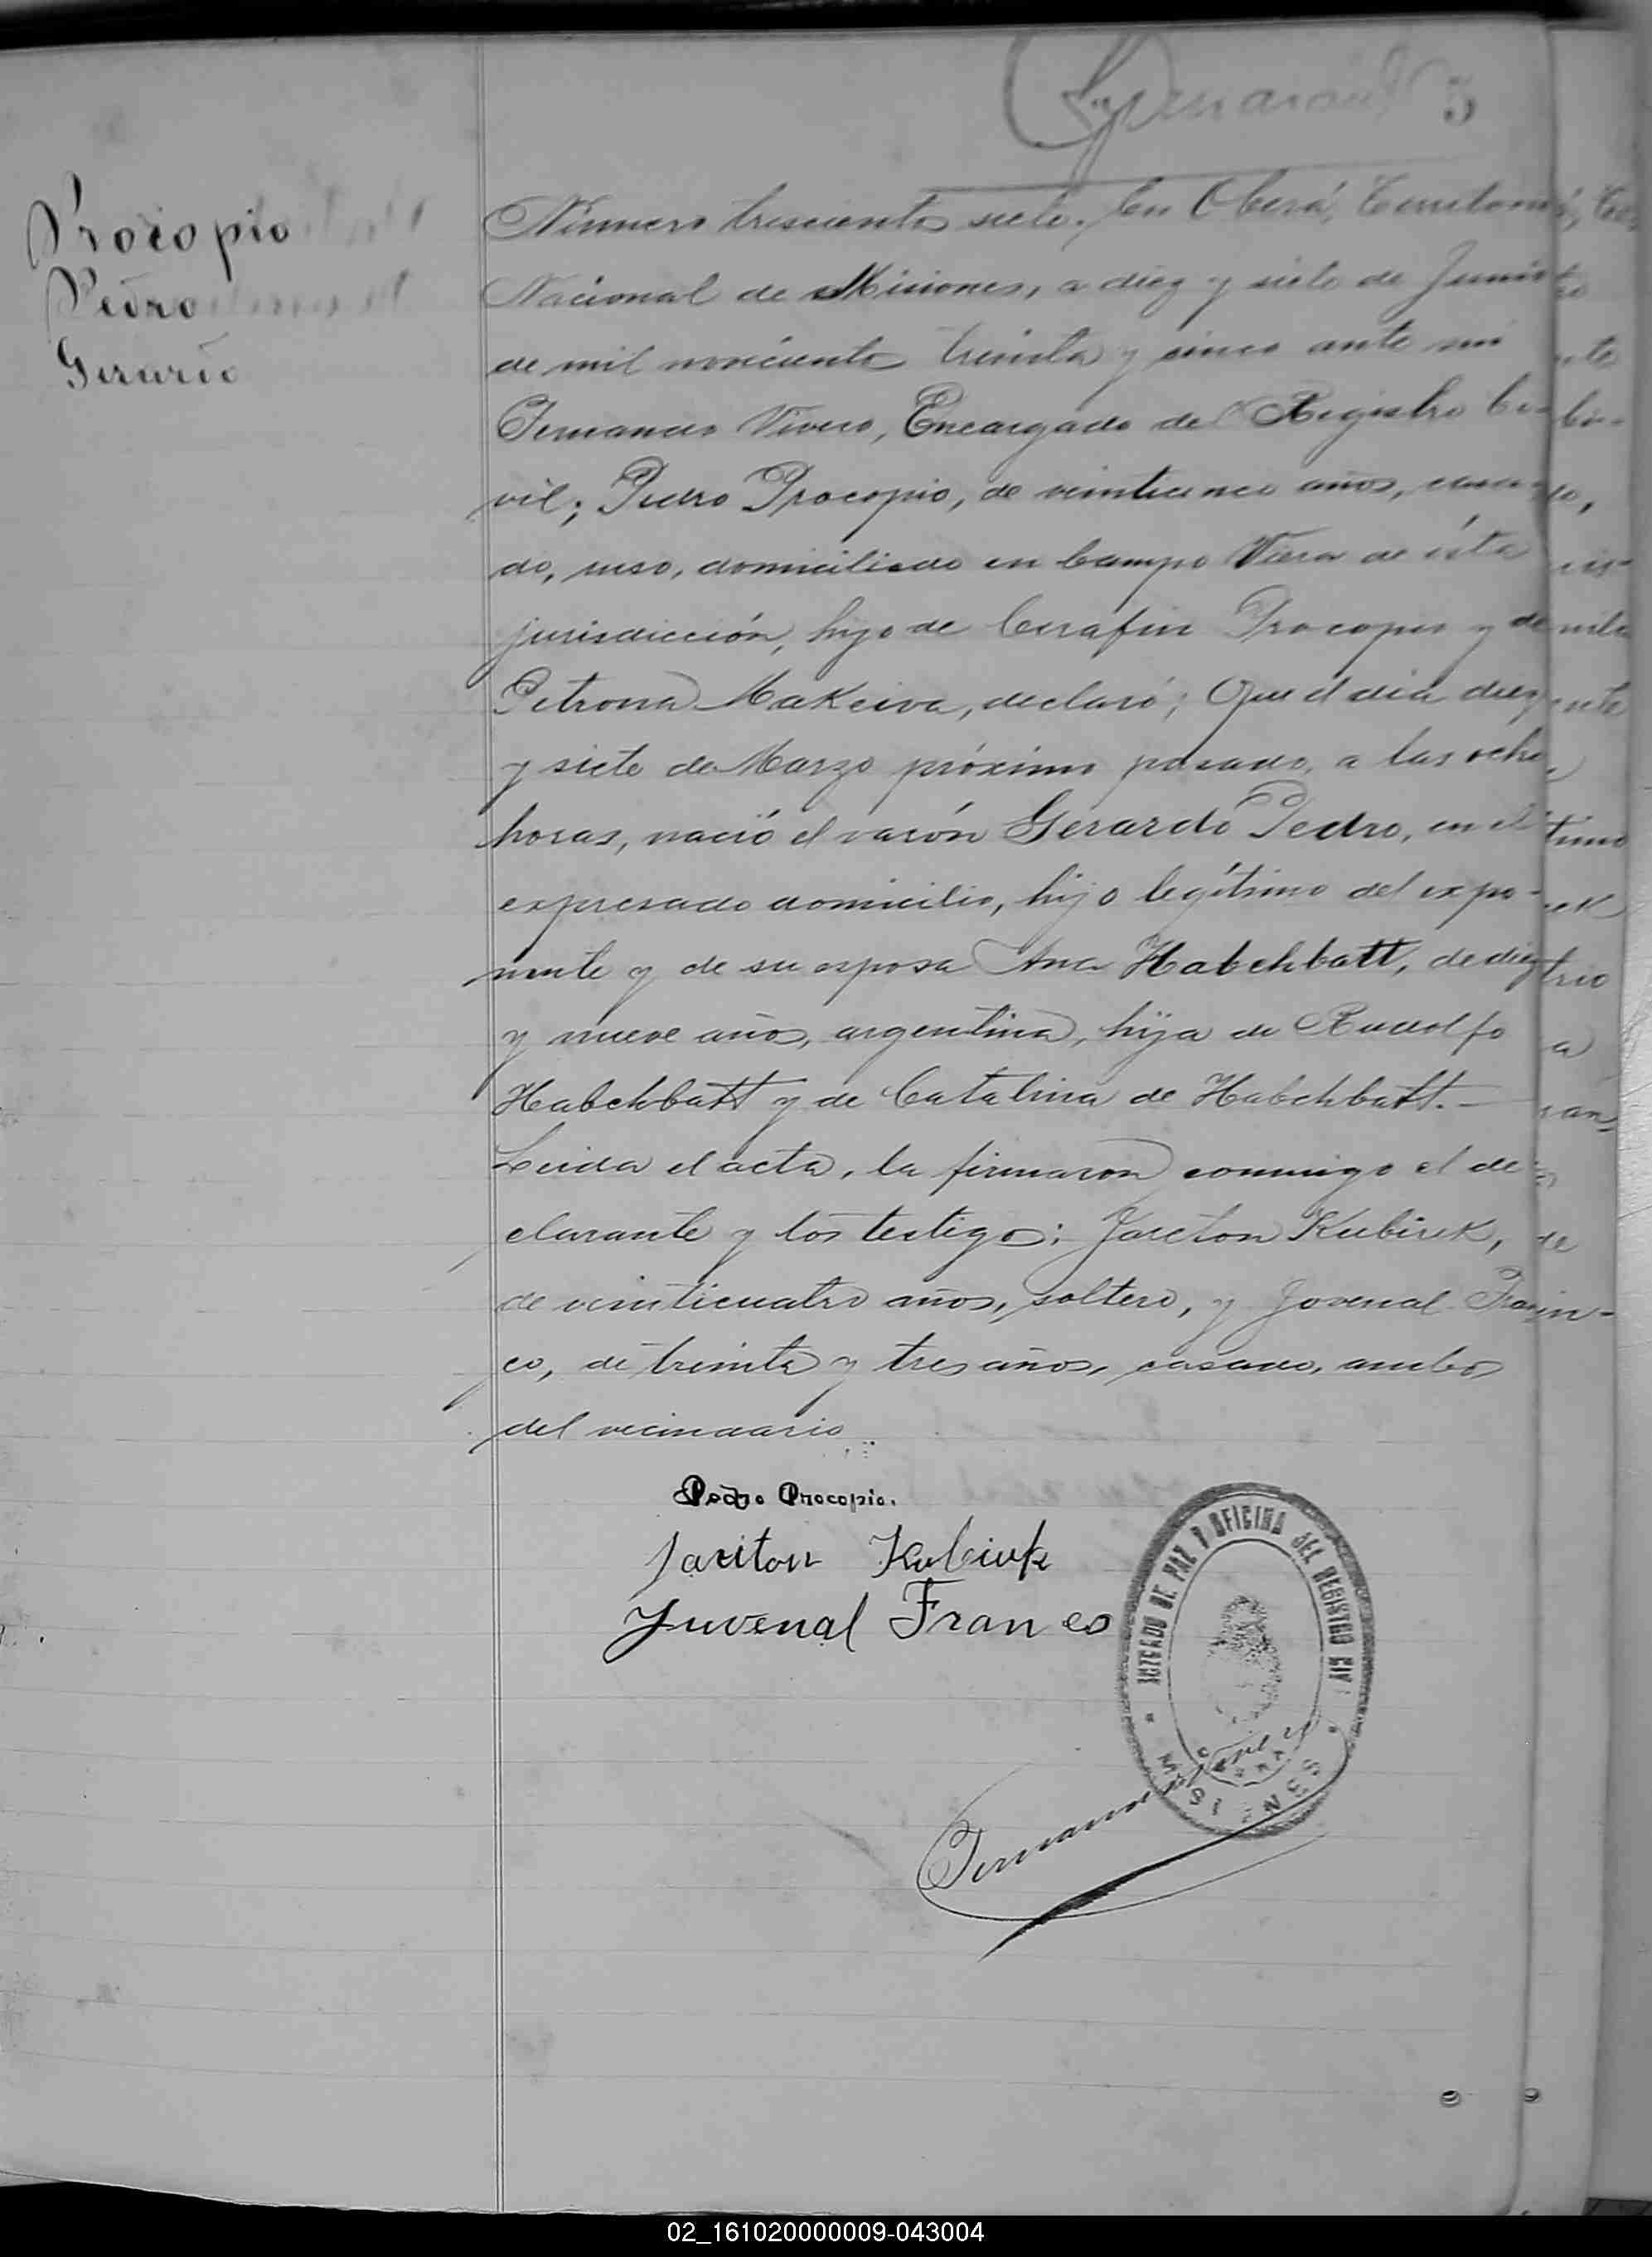 3
Procopio
Pedro
Gerardo
Número trescientos siete. En Oberá, Territorio
Nacional de Misiones, a diez y siete de Junio
de mil noveciento treinta y cinco ante mi
Fernando Vivero, Encargado del Registro Ci-
vil; Pedro Procopio, de veinticinco años, casa-
do, ruso, domiciliado en Campo Viera de ésta
jurisdicción, hijo de Cerafin Procopio y de
Petrona Makeiva, declaró; Que el dia diez
y siete de Marzo próximo pasado, a las ocho
horas, nació el varón Gerardo Pedro, en el
expresado domicilio, hijo legítimo del expo-
nente y de su esposa Ana Habchbatt, de diez
y nueve años, argentina, hija de Rudolfo
Habchbatt y de Catalina de Habchbatt.—
Leida el acta, la firmaron conmigo el de-
clarante y los testigos: Jareton Kubiuk,
de veinticuatro años, soltero, y Jovenal Fran-
co, de treinta y tres años, casado, ambos
del vecindario
Pedro Procopio.
Jariton Kubiuk
Juvenal Franco
JUZGADO DE PAZ Y OFICINA DEL REGISTRO CIV
MISIONES
Fernando
02_161020000009-043004